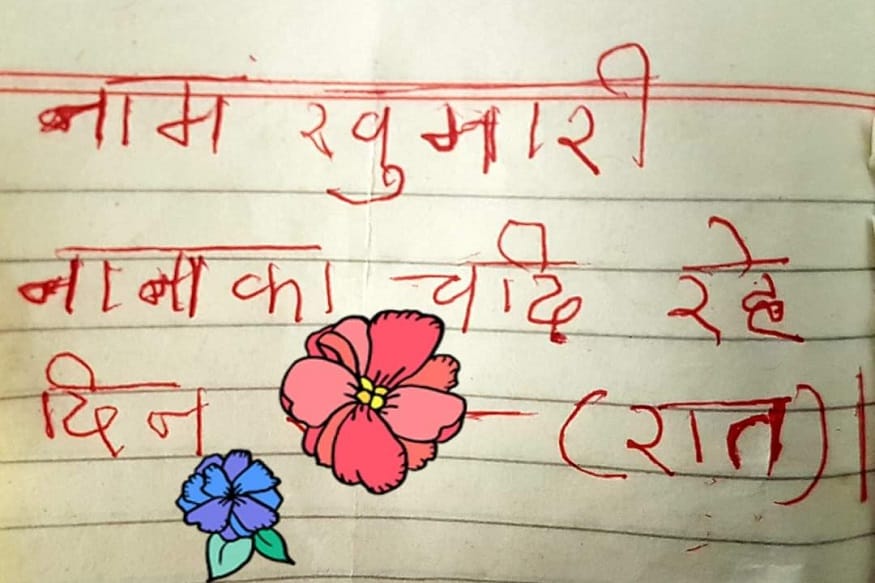 नाम खुमारी
नानका चदि रहे
दिन - (रात)।